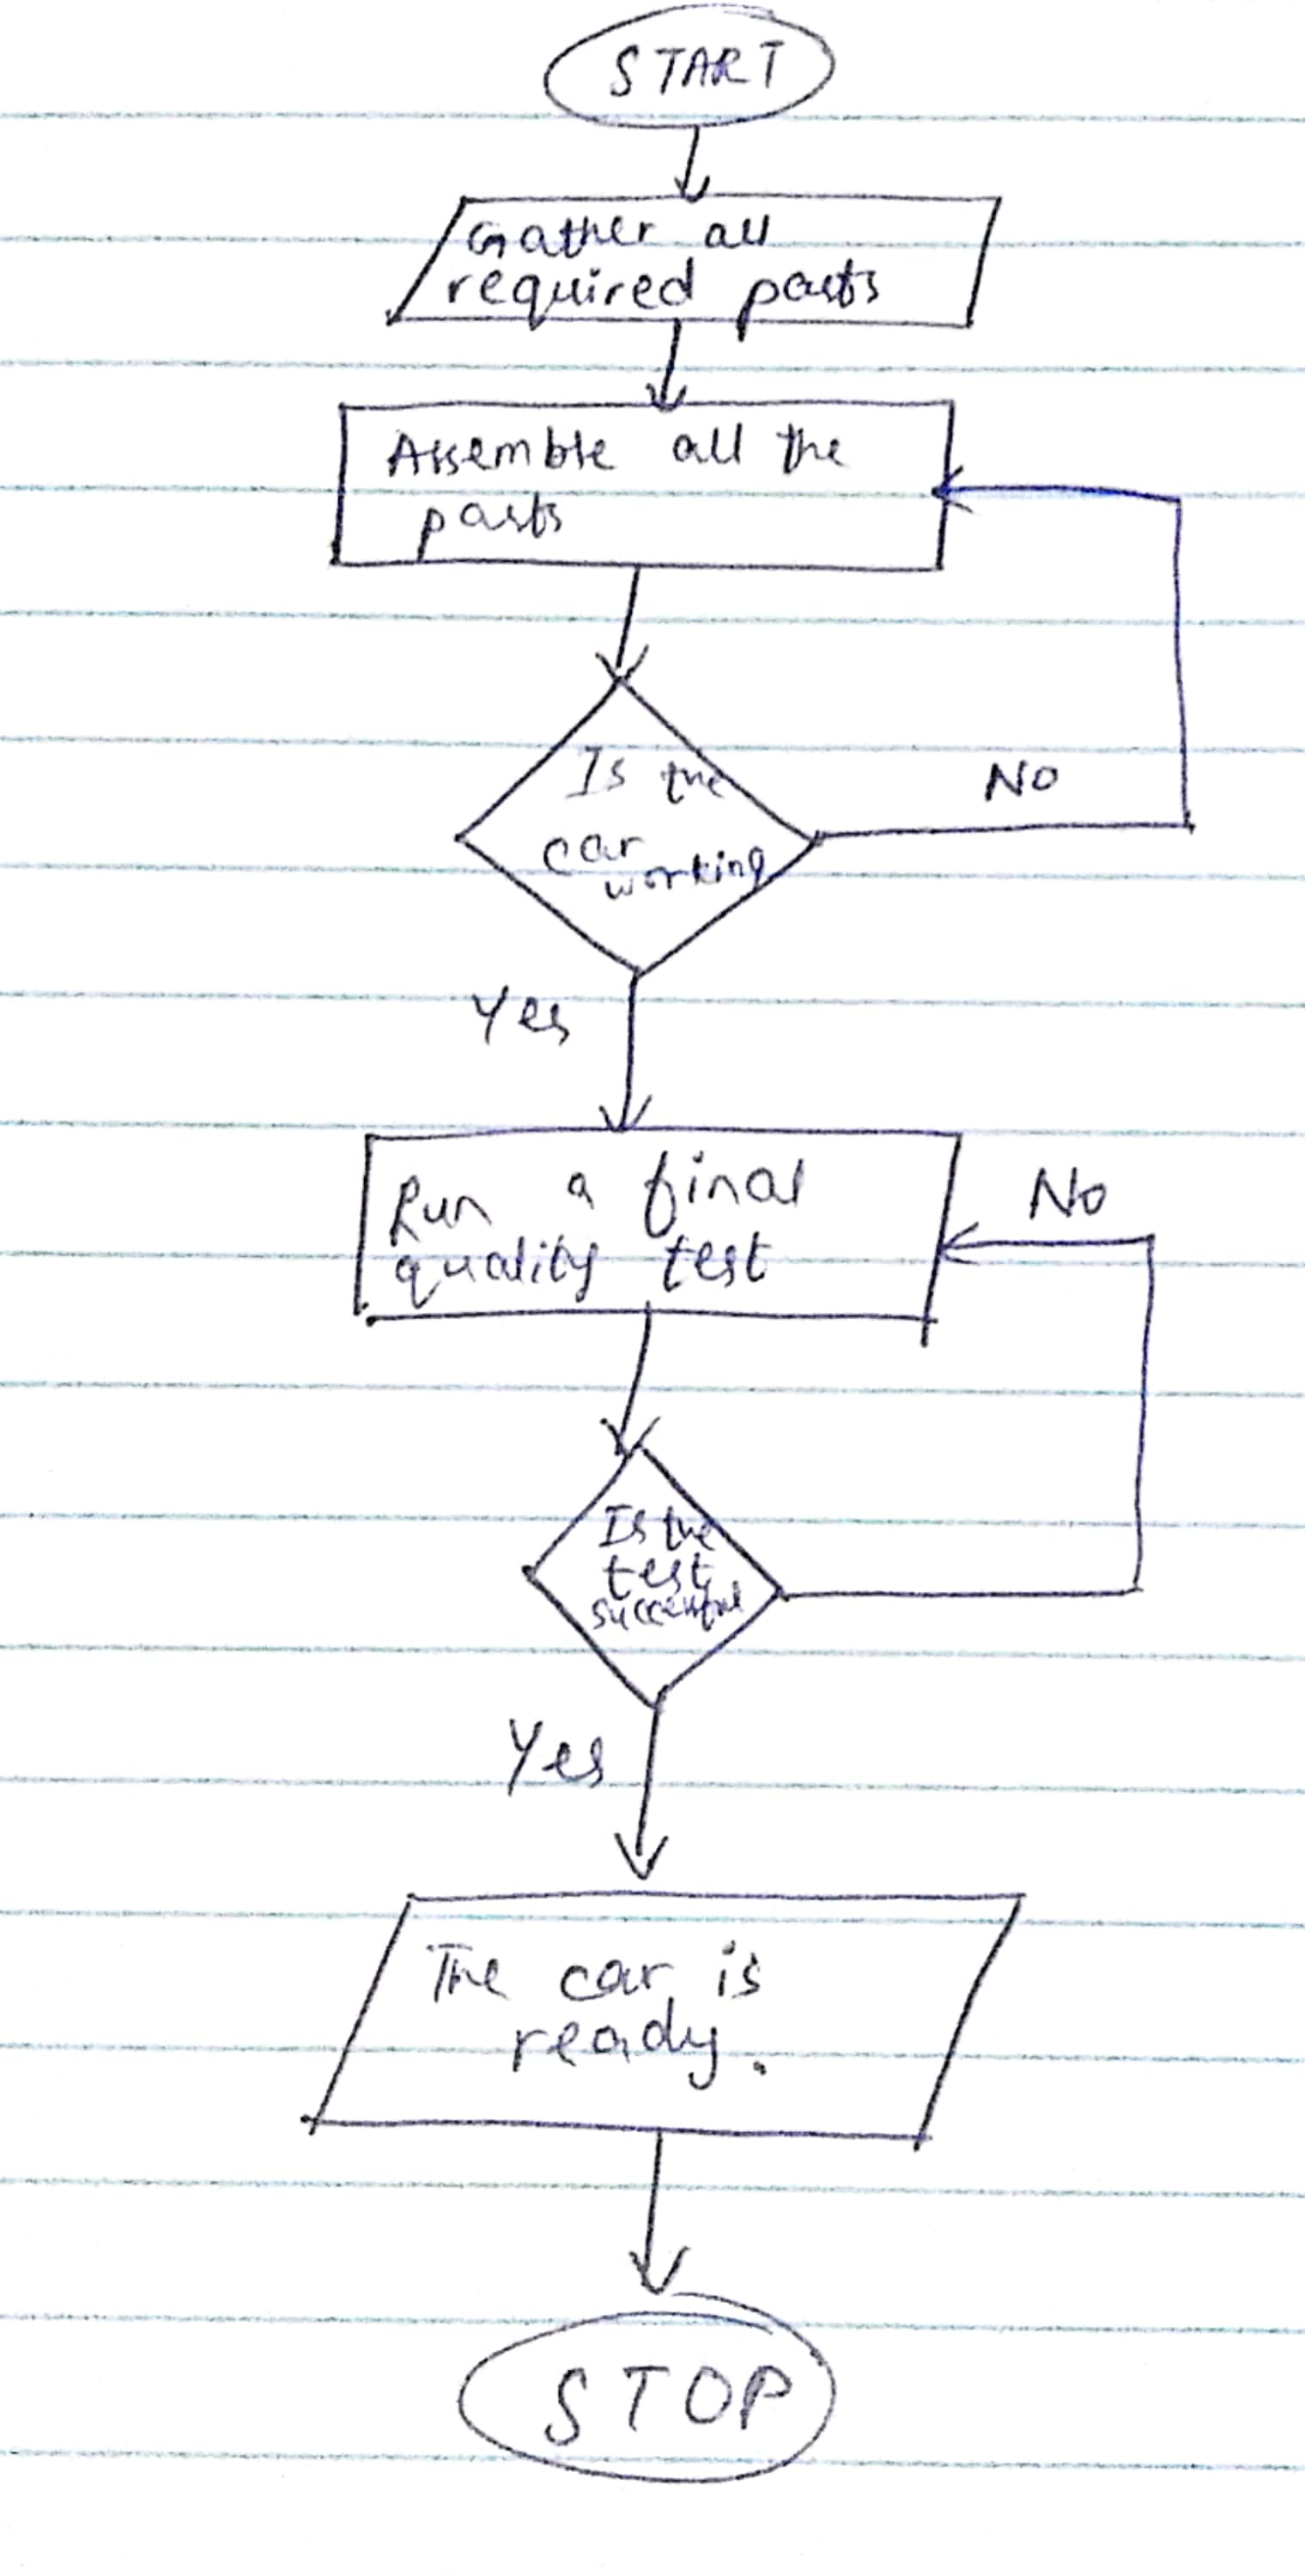 START
Gather all
required parts
Assemble all the
parts
Is the
car
working
No
Yes
Run a final
quality test
No
Is the
test
successful
Yes
The car is
ready.
STOP